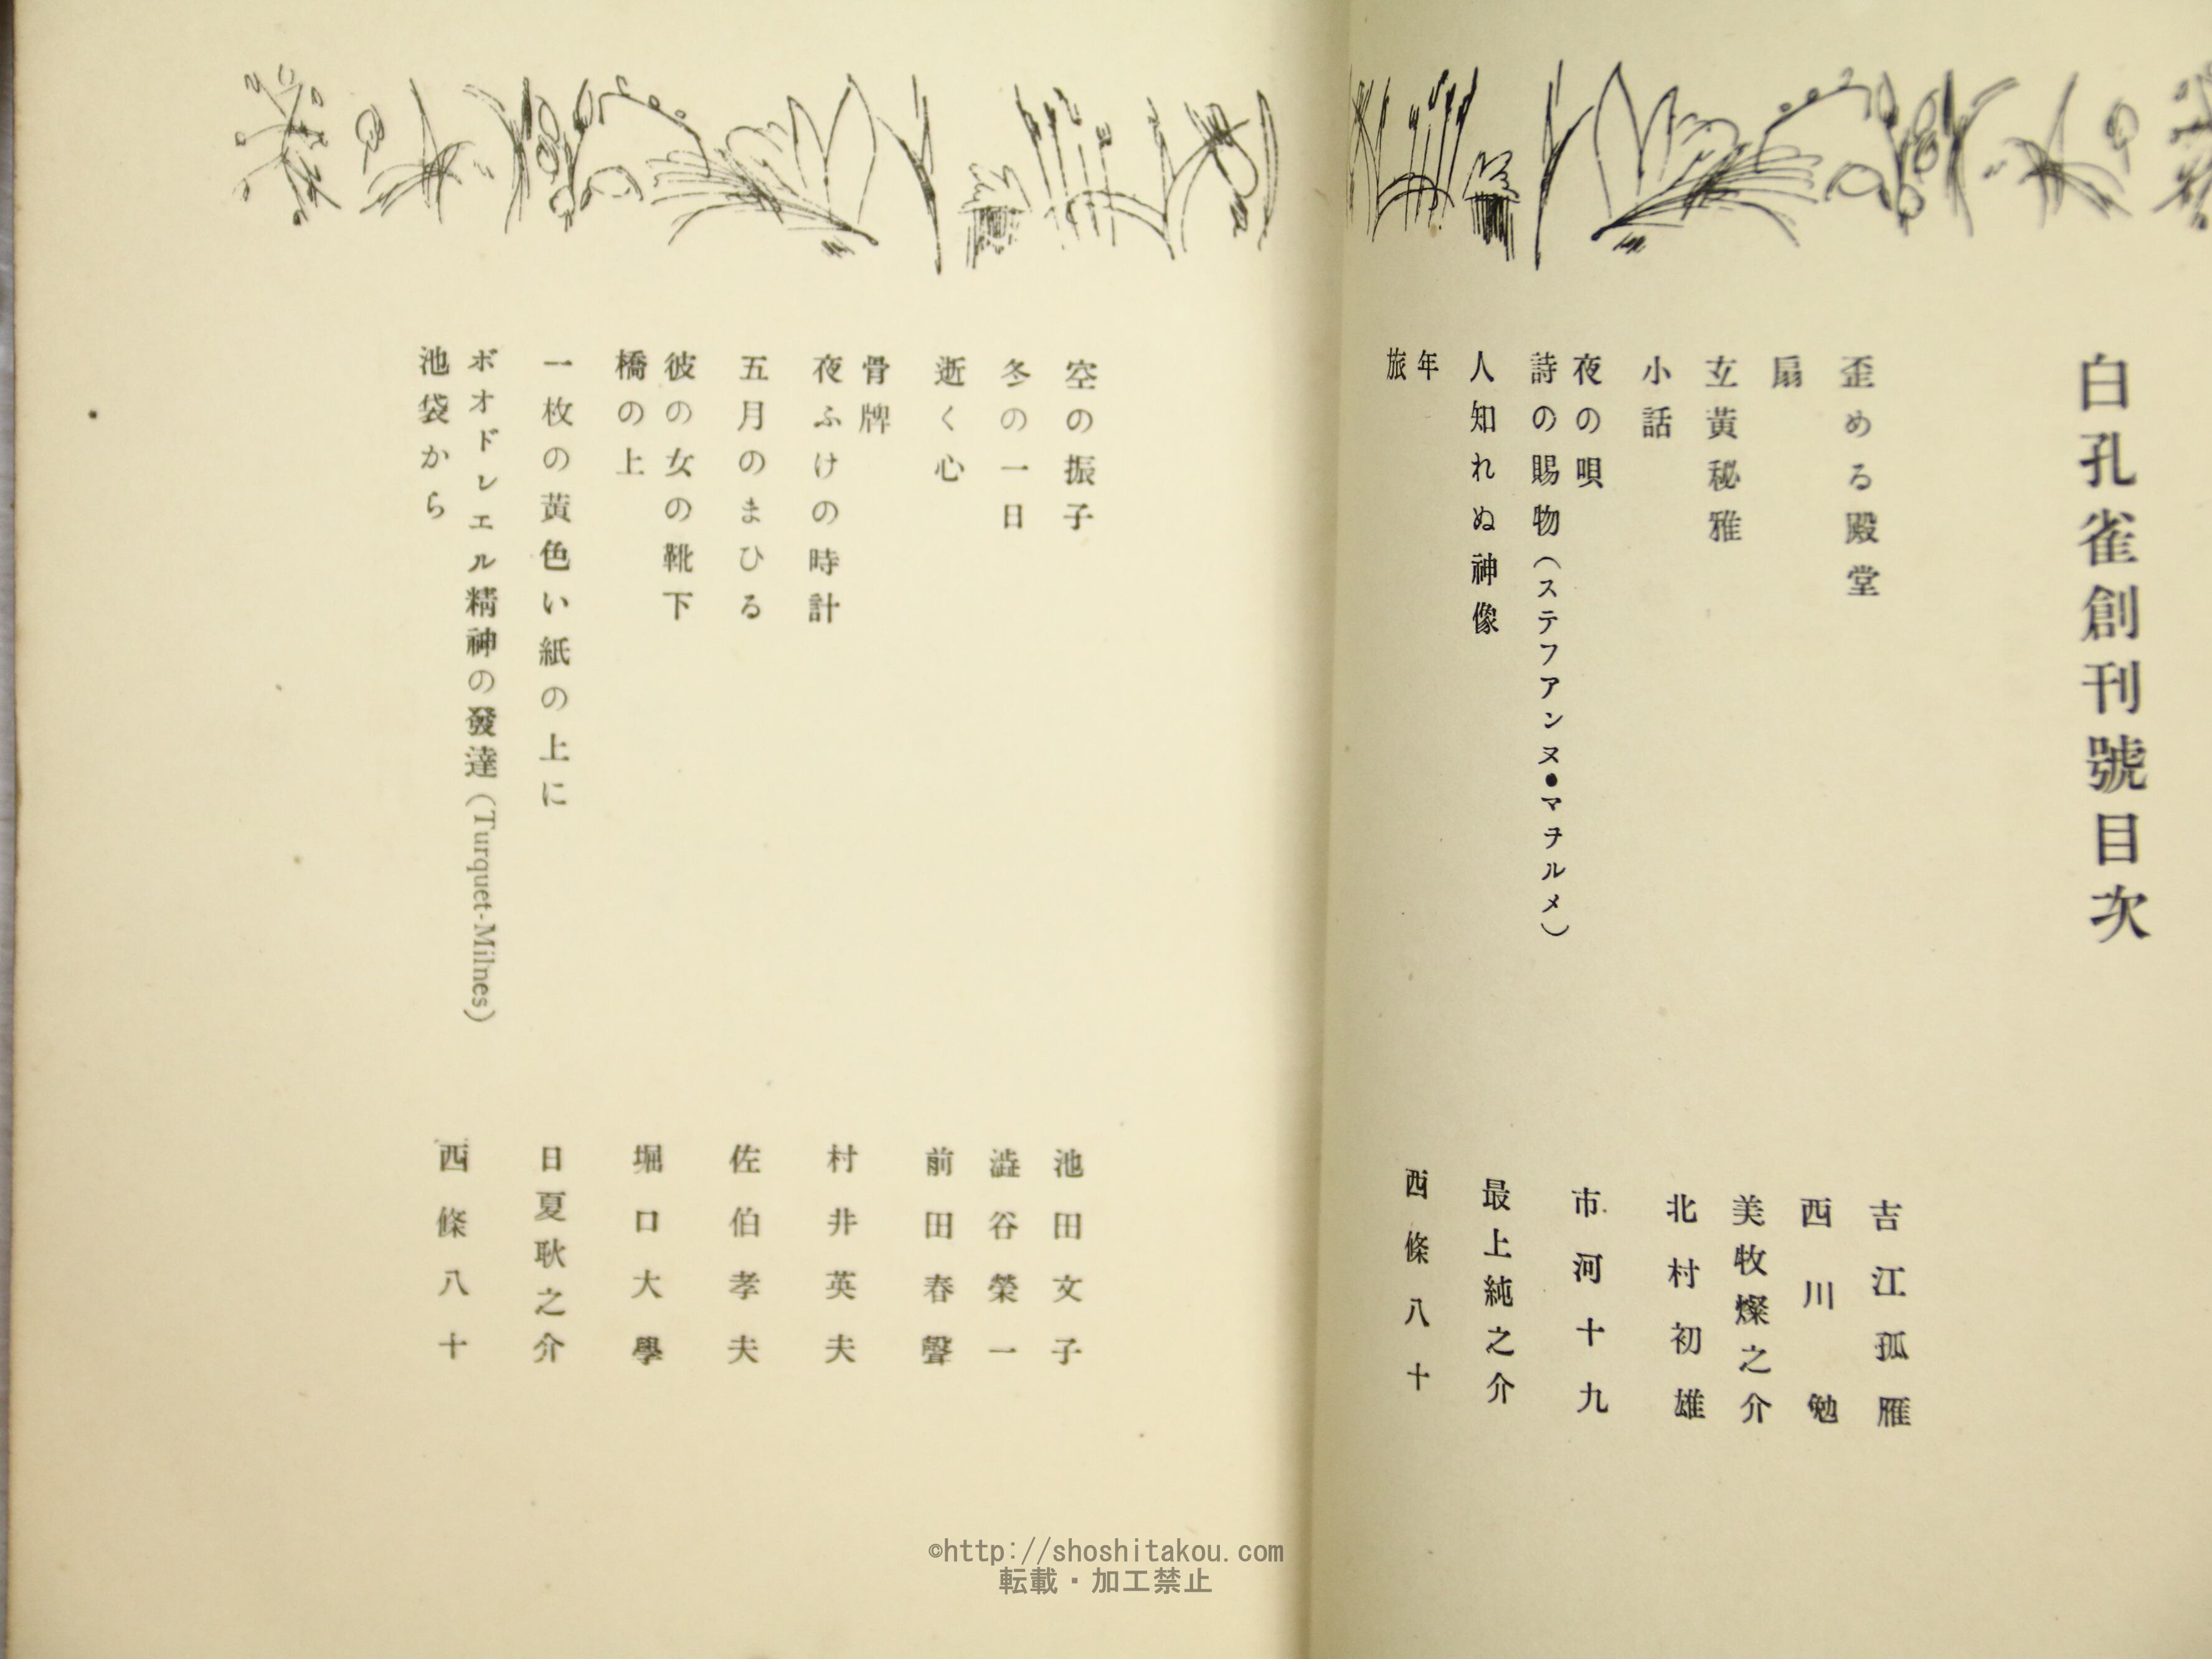 白孔雀創刊號目次
歪める殿堂
吉江孤雁
扇
西川勉
玄黃秘雅
美牧燦之介
小話
北村初雄
夜の唄
詩の賜物（ステフアンヌ●マヲルメ）
市河十九
人知れぬ神像
最上純之介
年
旅
西條八十
空の振子
池田文子
冬の一日
澁谷榮一
逝く心
前田春聲
骨牌
夜ふけの時計
村井英夫
五月のまひる
佐伯孝夫
彼の女の靴下
橋の上
堀口大學
一枚の黃色い紙の上に
日夏耿之介
ボオドレエル精神の發達（Turquet-Milnes）
池袋から
西條八十
©http://shoshitakou.com
転載・加工禁止